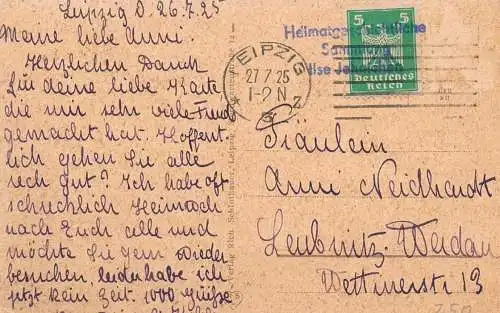 Leipzig d. 26.7.25
Meine liebe Anni.
Herzlichen Dank
für deine liebe Karte
die mir sehr viel Freud
gemacht hat. Hoffent-
lich gehen Sie alle
rech gut? Ich habe oft
schrecklich Heimweh
nach Euch alle und
möchte Sie gern wieder
besuchen, leider habe ich
jetzt kein Zeit. 1000 Grüße
Heimatgeschichtliche
Sammlung
Ilse
LEIPZIG
27.7.25
1-2 N
5 5
Deutsches
Reich
Verlag Rich. Leipzig
Fräulein
Anni Neidhardt
Leubnitz-Werdau
Wettinerstr 13